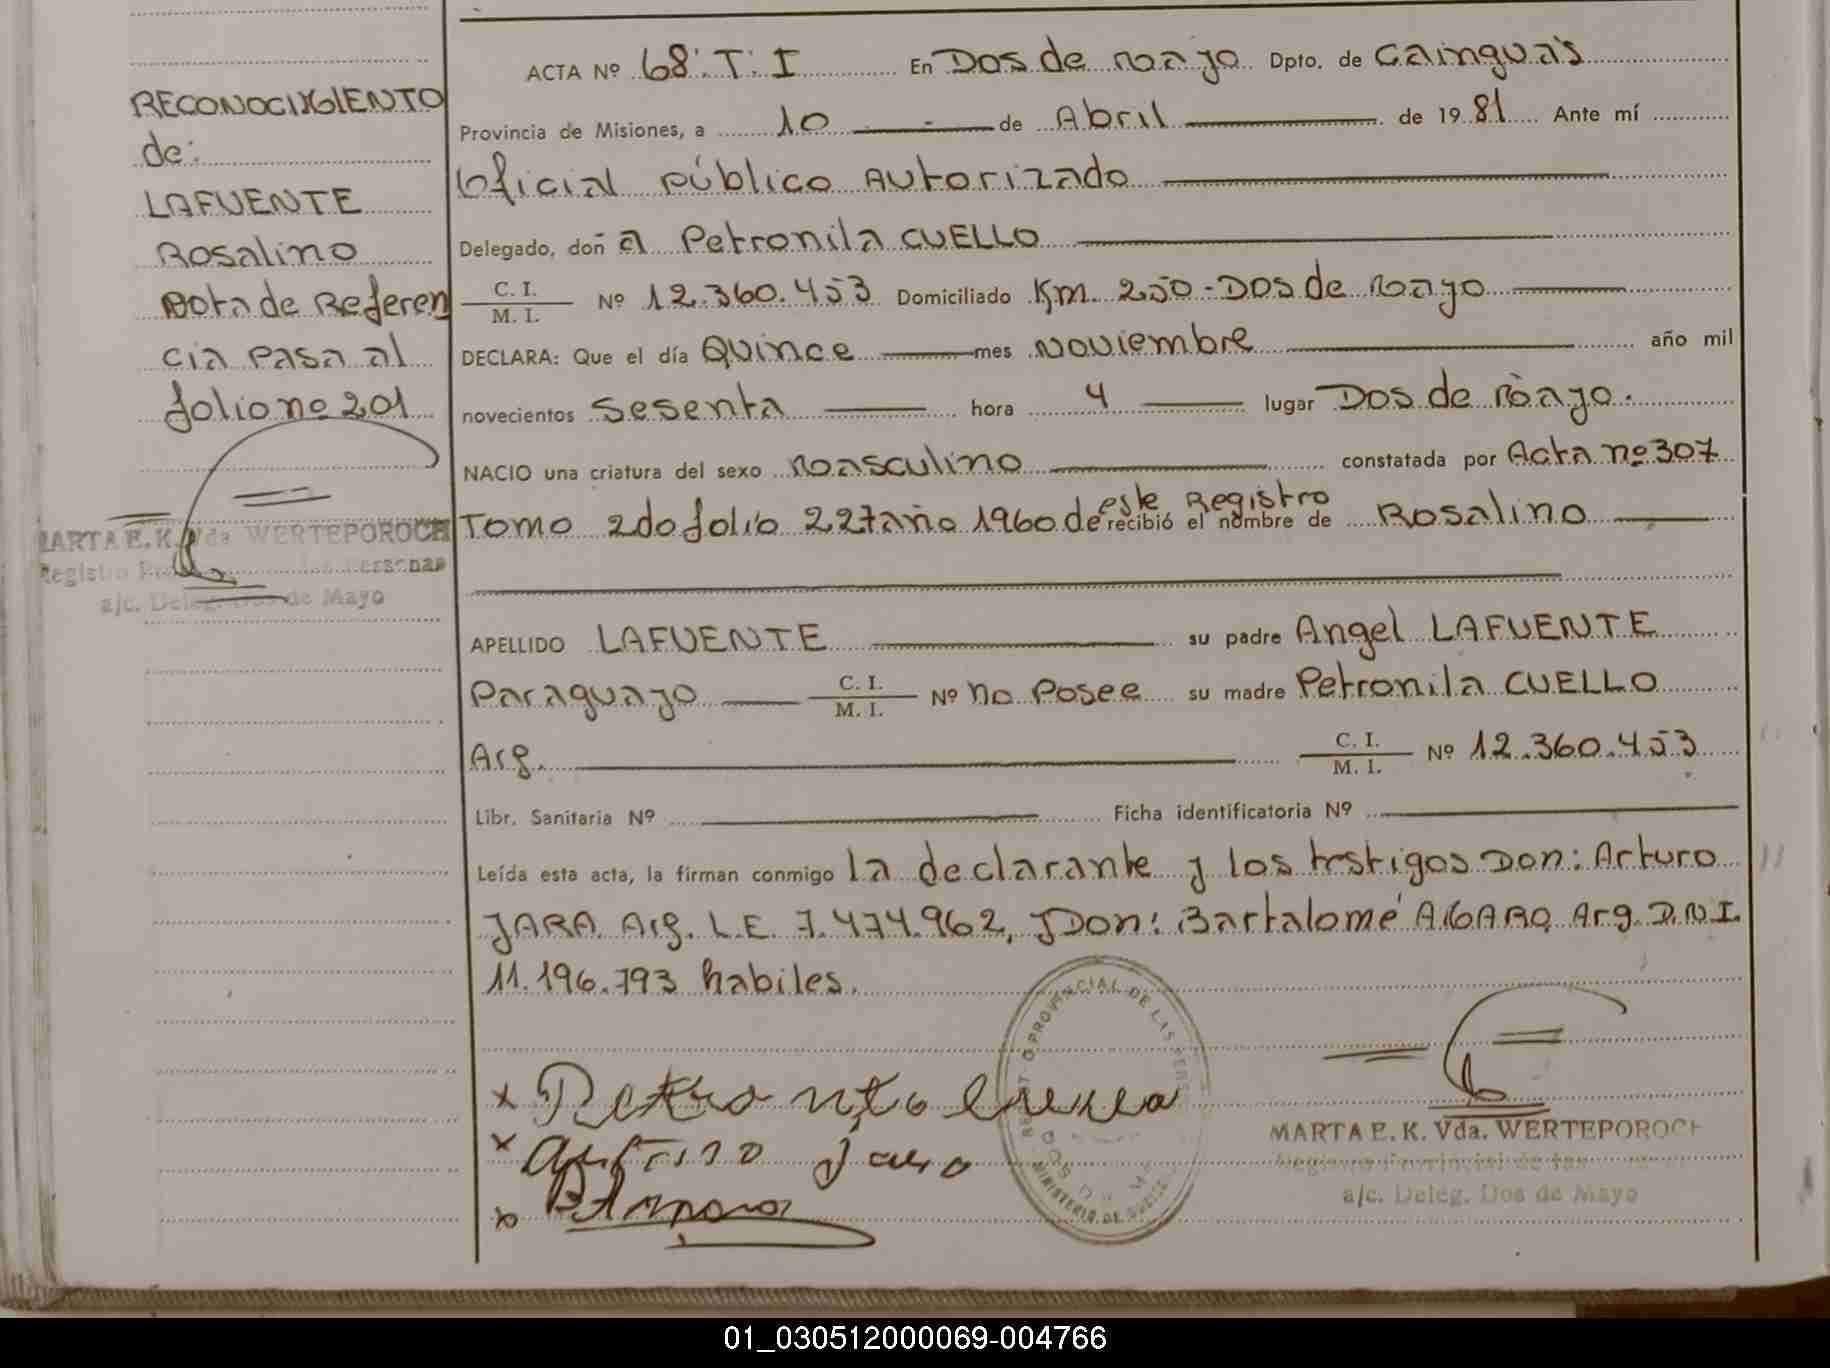 RECONOCIMIENTO
de:
LAFUENTE
Rosalino
Nota de Referen
cia Pasa al
folio nº 201
MARTA E. K. Vda. WERTEPOROCH
Registro
a/c. Deleg. Dos de Mayo
ACTA Nº 68. T. I En Dos de Mayo Dpto. de Cainguás
Provincia de Misiones, a 10 - de Abril de 1981 Ante mí
Oficial Público Autorizado
Delegado, doña Petronila CUELLO
C. I. / M. I. Nº 12.360.453 Domiciliado Km. 250 - Dos de Mayo
DECLARA: Que el día Quince mes Noviembre año mil
novecientos Sesenta hora 4 lugar Dos de Mayo.
NACIO una criatura del sexo Masculino constatada por Acta nº 307
Tomo 2do folio 227 año 1960 de este Registro recibió el nombre de Rosalino
APELLIDO LAFUENTE su padre Angel LAFUENTE
Paraguayo C. I. / M. I. Nº no Posee su madre Petronila CUELLO
Arg. C. I. / M. I. Nº 12.360.453
Libr. Sanitaria Nº Ficha identificatoria Nº
Leída esta acta, la firman conmigo la declarante y los testigos Don: Arturo
JARA Arg. L.E. 7.474.962, y Don: Bartalomé Arg. D.N.I.
11.196.793 habiles.
REGISTRO PROVINCIAL DE LAS PERS
DOS DE MAYO
MINISTERIO DE
MARTA E. K. Vda. WERTEPOROCH
Registro Provincial de las
a/c. Deleg. Dos de Mayo
01_030512000069-004766